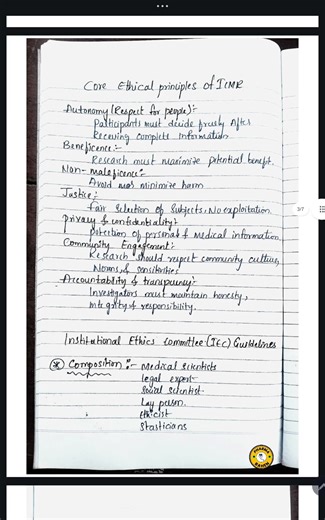 Core Ethical principles of ICMR
Autonomy (Respect for people):-
Participants must decide freely After
Receiving complete Information
Beneficence:-
Research must maximize potential benefit.
Non-maleficence:-
Avoid minimize harm
Justice:-
fair selection of subjects, No exploitation
privacy & confidentiality:-
protection of personal & Medical information
Community Engagement:-
Research should respect community culture,
Norms, & sensitivities
Accountability & transparency:-
Investigators must maintain honesty,
integrity & responsibility.
3/7
Institutional Ethics Committee (IEC) Guidelines
Composition:- Medical scientists
legal expert
Social scientist
Lay person
Ethicist
Stasticians